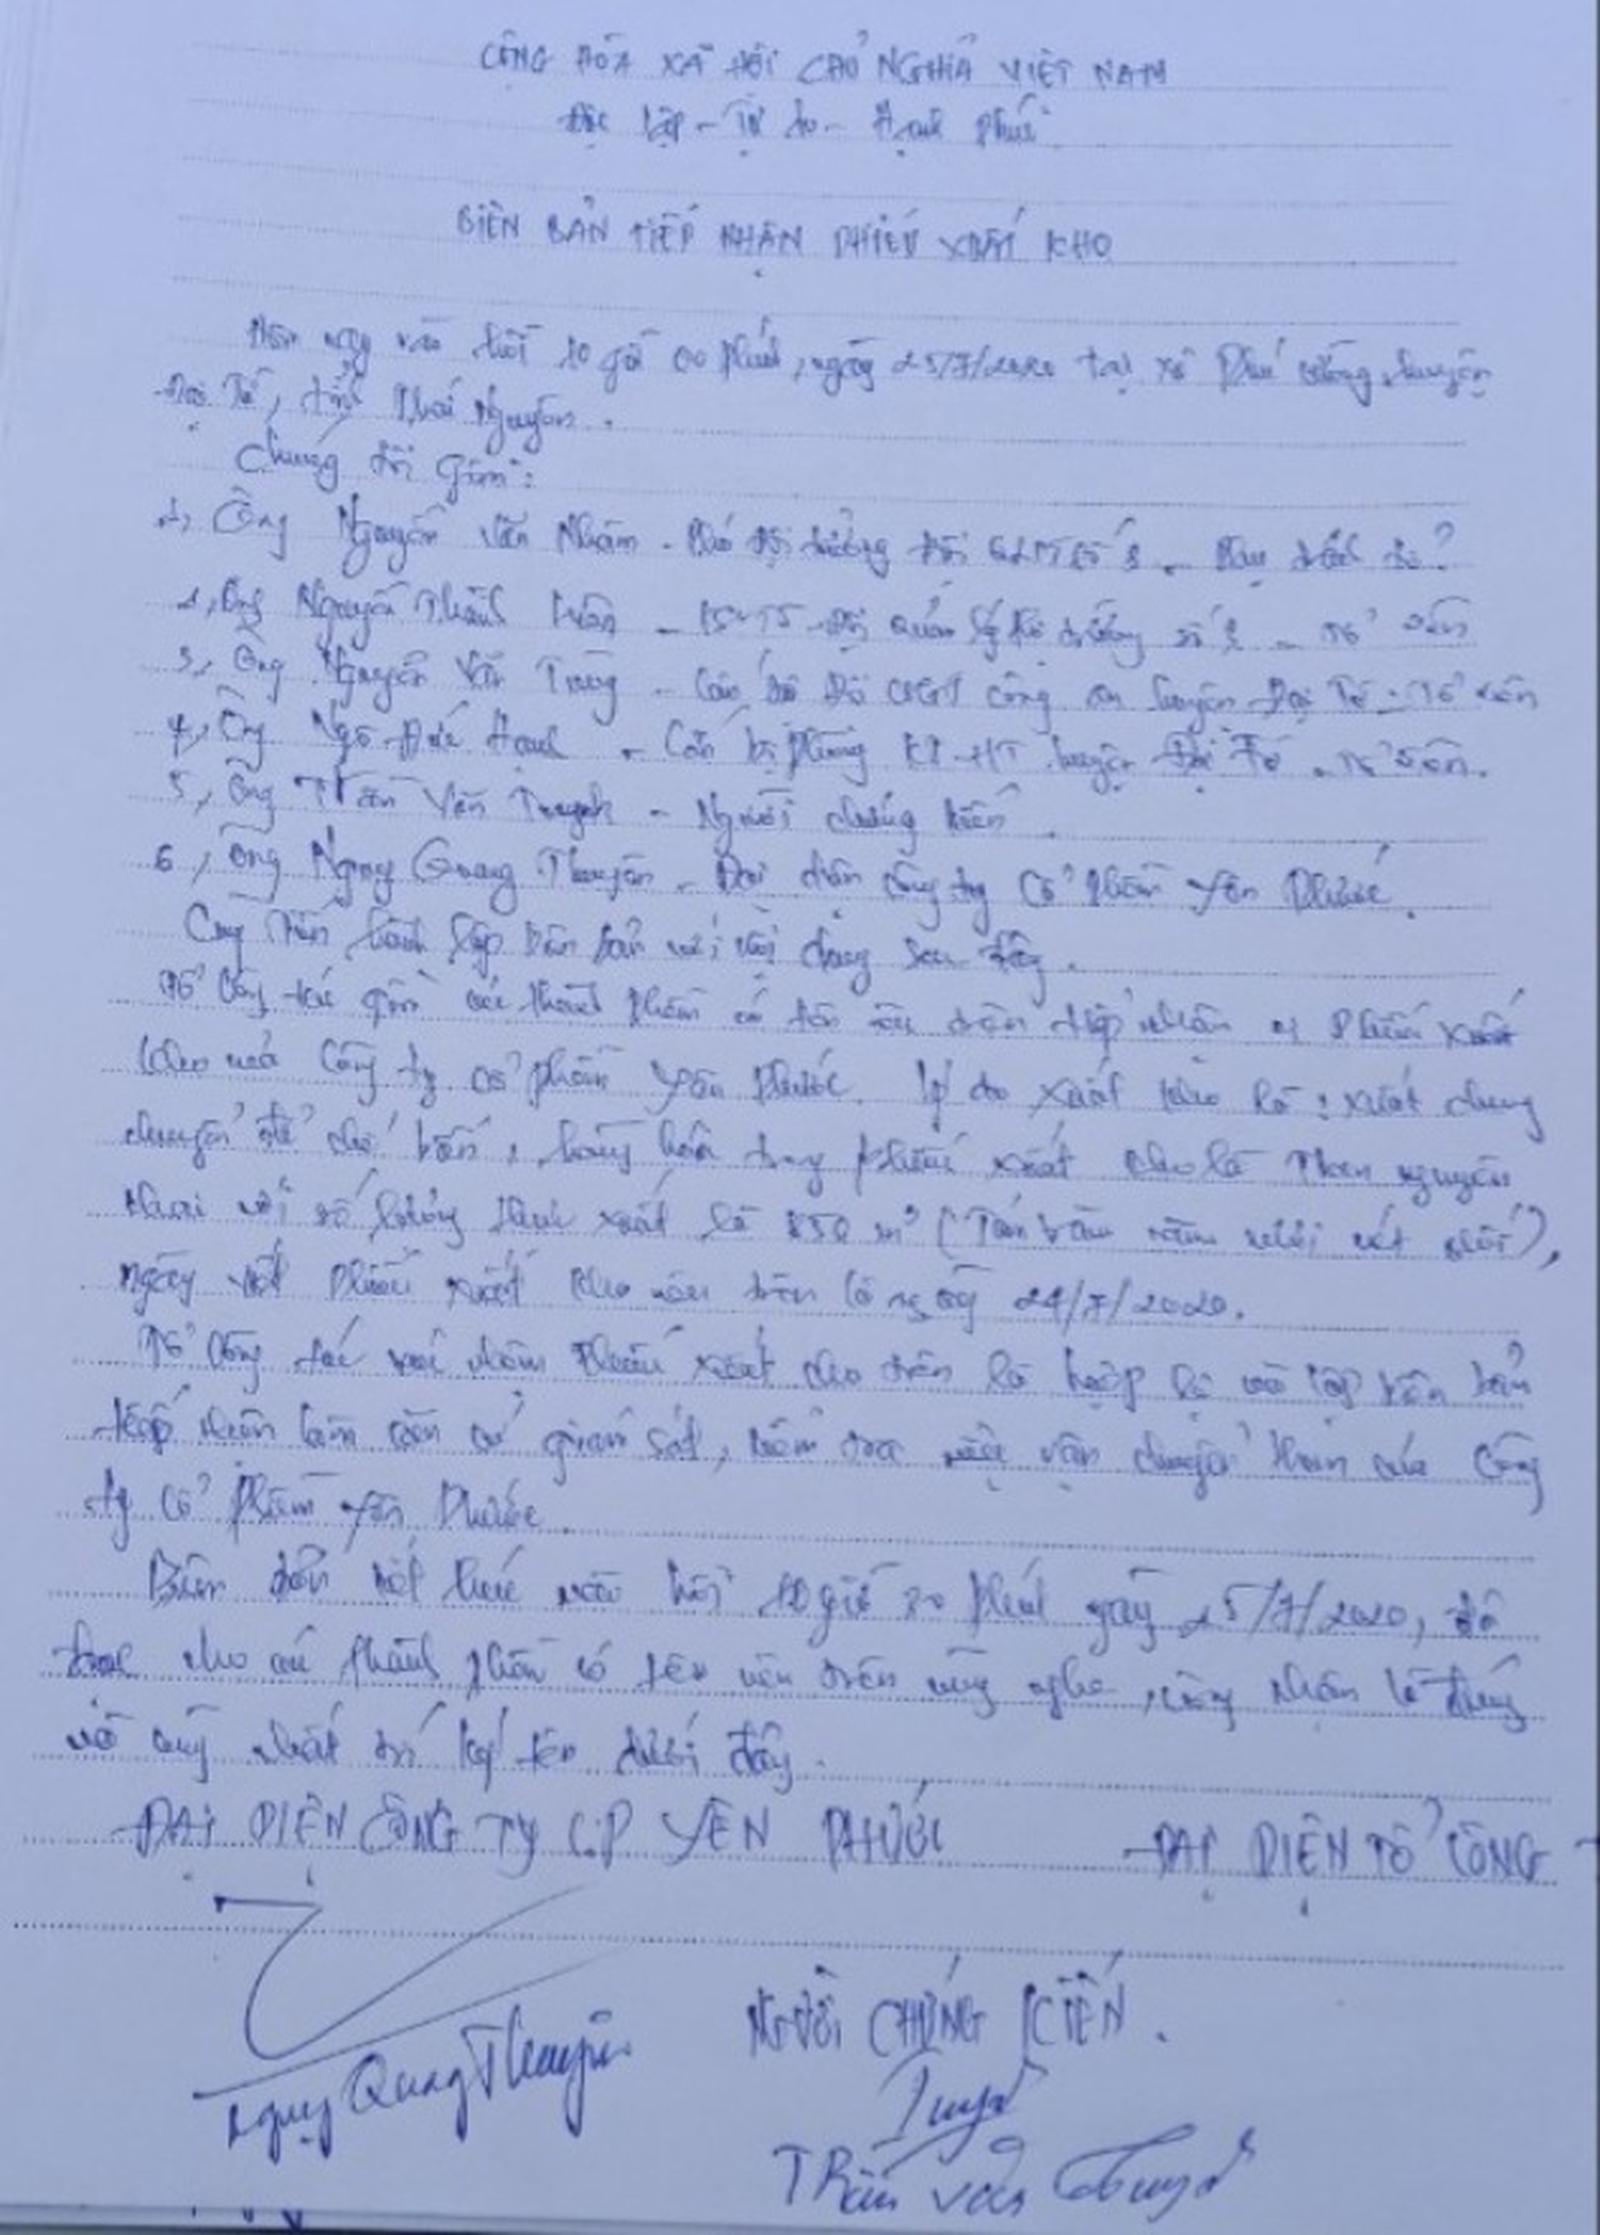 CỘNG HÒA XÃ HỘI CHỦ NGHĨA VIỆT NAM
Độc lập - Tự do - Hạnh phúc
BIÊN BẢN TIẾP NHẬN PHIẾU XUẤT KHO
Hôm nay vào hồi 10 giờ 00 phút, ngày 25/7/2020 tại xã huyện
Đại Từ, tỉnh Thái Nguyên.
Chúng tôi gồm:
1, Ông Nguyễn Văn Nhâm - Phó đội trưởng Đội
2, Ông Nguyễn Thành - KSVTT - Đội Quản lý thị trường số - Tổ viên
3, Ông Nguyễn Văn Trung - Cán bộ Đội CSGT công an huyện Đại Từ - Tổ viên
4, Ông Ngô Đức Hạnh - Cán bộ phòng KT-HT huyện Đại Từ - Tổ viên.
5, Ông Trần Văn Tuynh - Người chứng kiến.
6, Ông Ngụy Quang Thuyên - Đại diện công ty Cổ phần Yên Phước.
Cùng tiến hành lập biên bản với nội dung sau đây.
Tổ công tác gồm các thành phần có tên nêu trên tiếp nhận phiếu xuất
kho của Công ty cổ phần Yên Phước. Lý do xuất kho là: xuất chung
chuyển để chế biến, hàng hóa trong phiếu xuất kho là Than nguyên
khai với số lượng thực xuất là 850 m³ (Tám trăm năm mươi mét khối),
ngày viết phiếu xuất kho nêu trên là ngày 24/7/2020.
Tổ công tác xác nhận phiếu xuất kho trên là hợp lệ và lập biên bản
tiếp nhận làm căn cứ giám sát, kiểm tra việc vận chuyển than của Công
ty Cổ phần Yên Phước.
Biên bản kết thúc vào hồi 10 giờ 30 phút ngày 25/7/2020, đã
đọc cho các thành phần có tên nêu trên cùng nghe, công nhận là đúng
và cùng nhất trí ký tên dưới đây.
ĐẠI DIỆN CÔNG TY C.P YÊN PHƯỚC ĐẠI DIỆN TỔ CÔNG
NGƯỜI CHỨNG KIẾN.
Ngụy Quang Thuyên
Tuynh
Trần Văn Tuynh